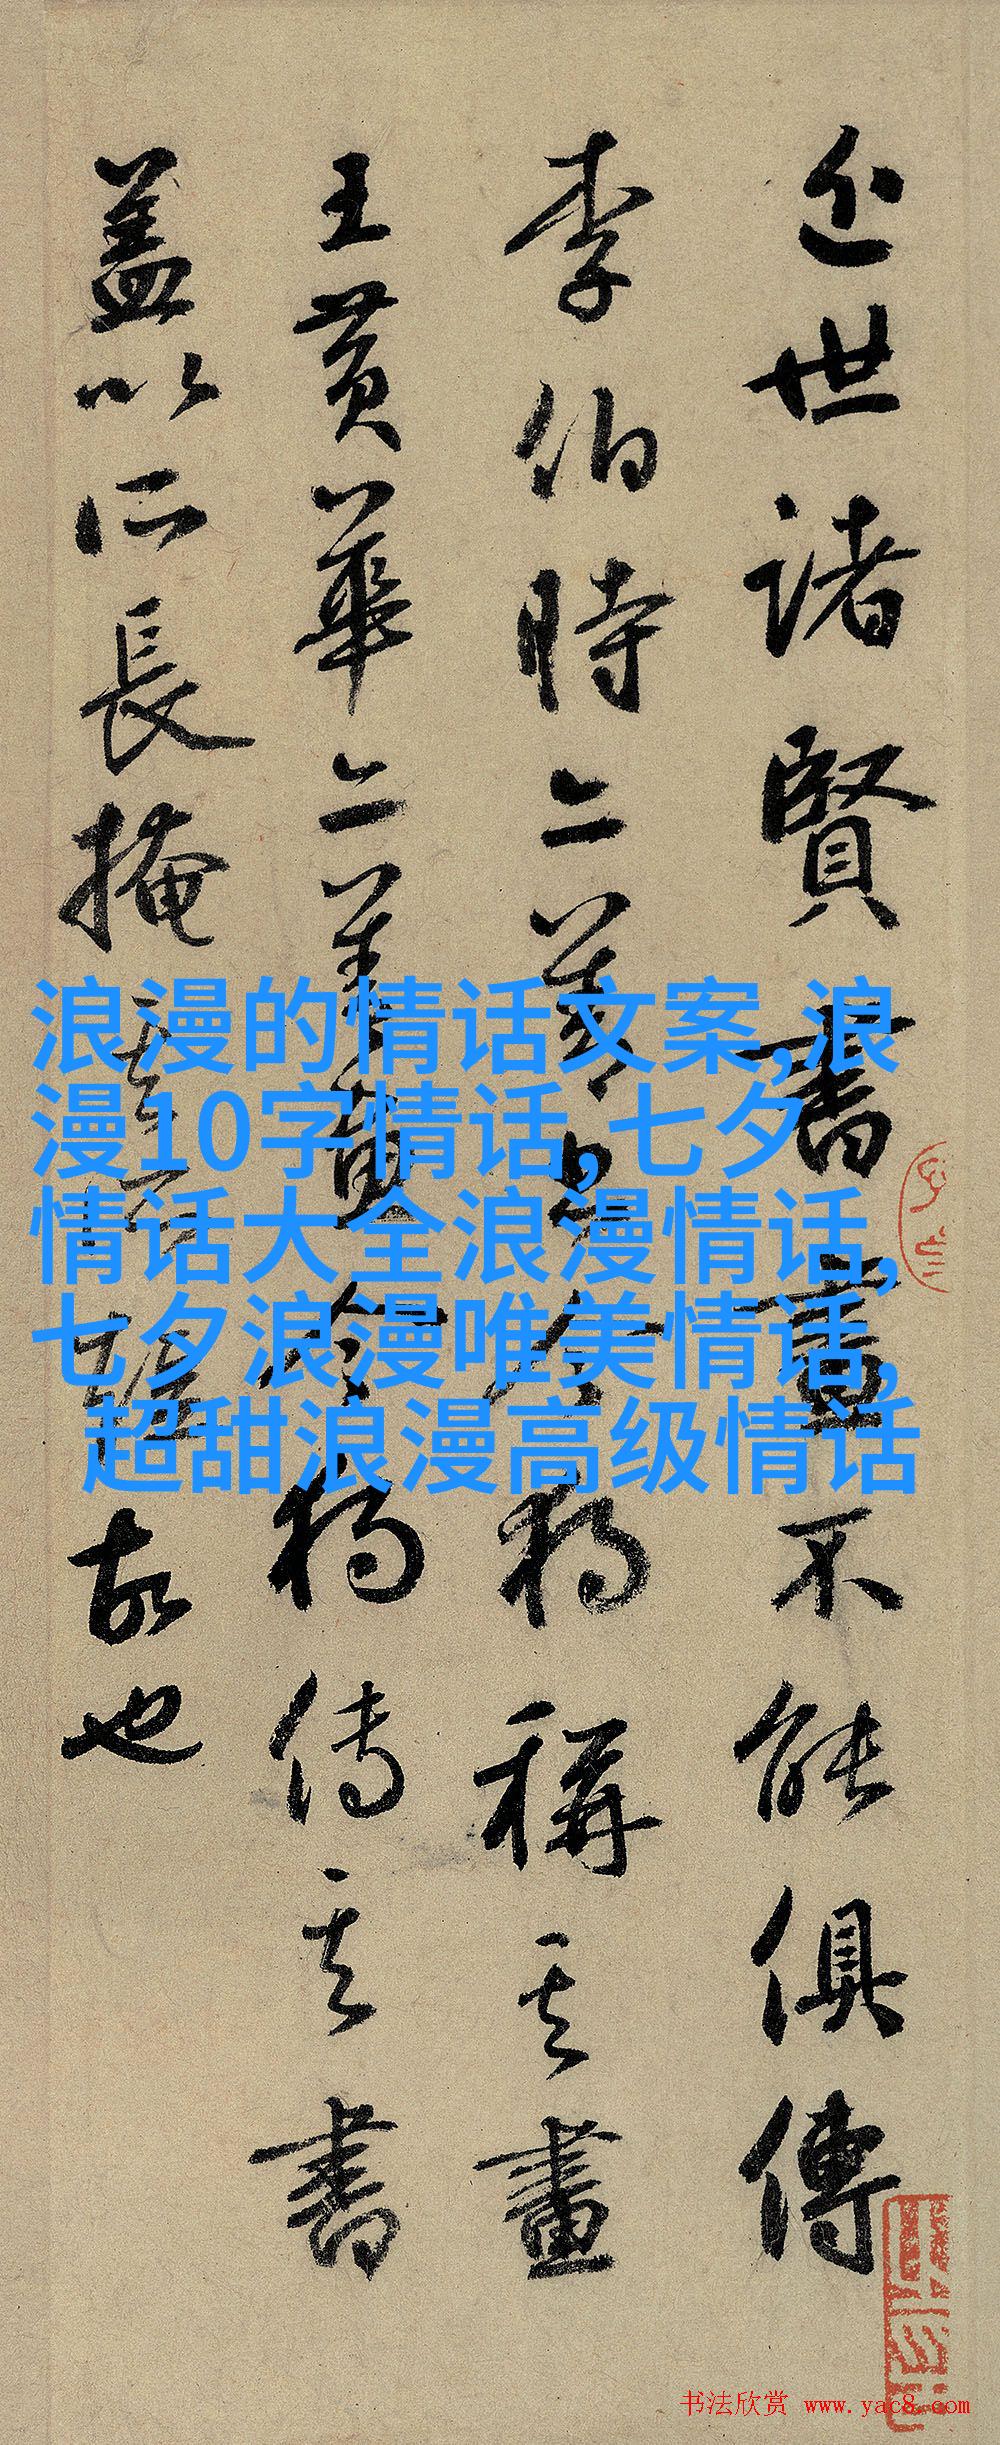 近世諸賢書畫不能俱傳
李伯時二美今獨稱其畫
王黃華二美今獨傳其書
蓋以所長掩其所故也
浪漫的情话文案,浪
漫10字情话,七夕
情话大全浪漫情话,
七夕浪漫唯美情话,
超甜浪漫高级情话
书法欣赏 www.yac8.com